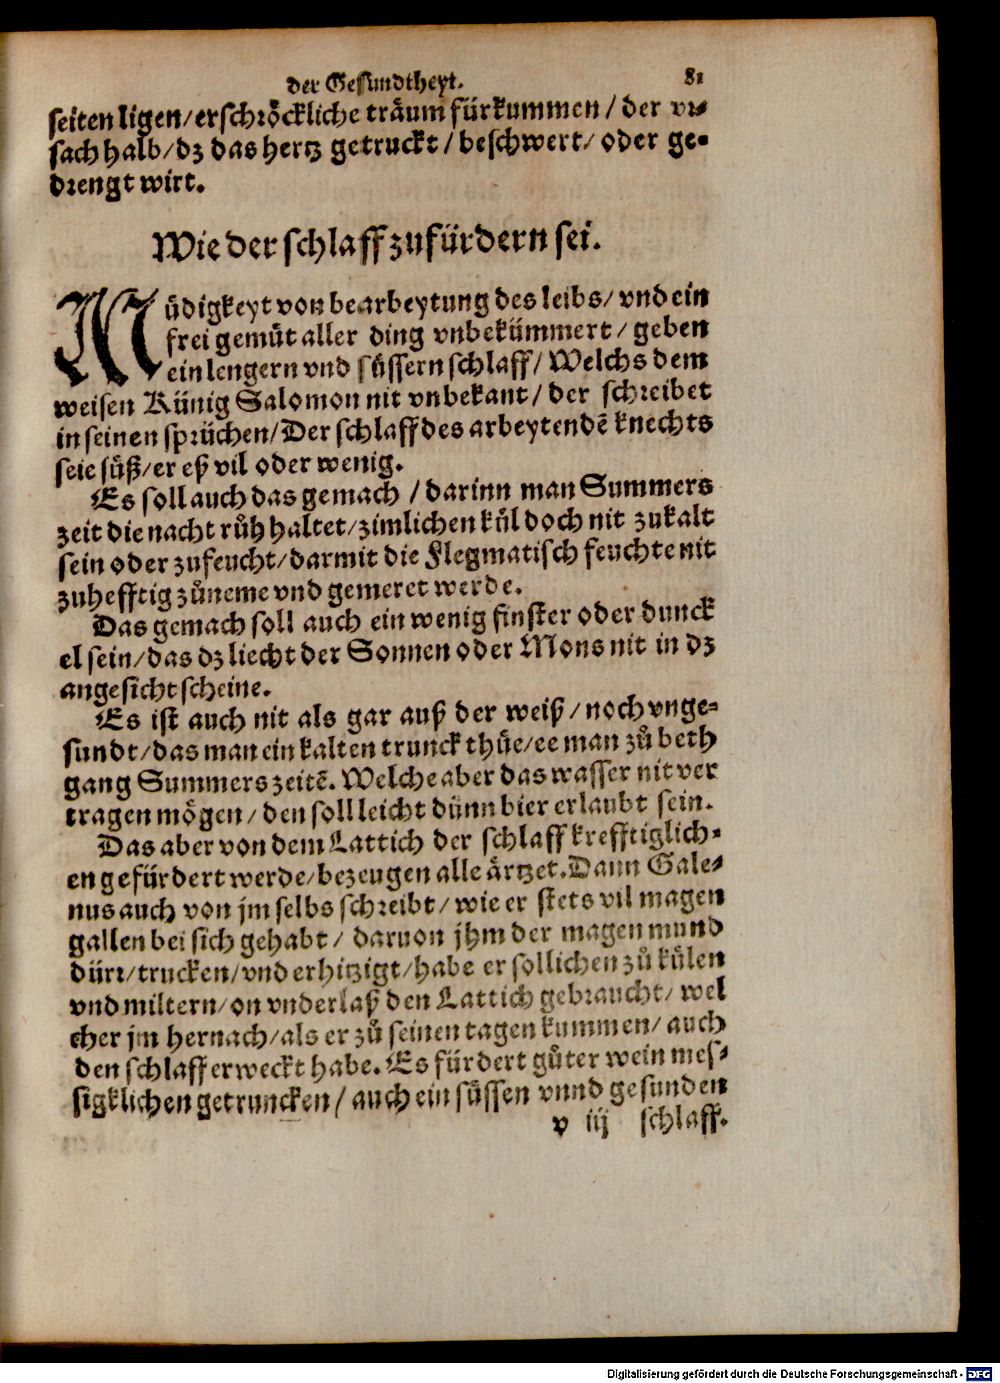 der Gesundtheyt. 81
seiten ligen/erschröckliche träum fürkummen/der vr⸗
sach halb/dz das hertz getruckt/beschwert/oder ge⸗
drengt wirt.
Wie der schlaff zufürdern sei.
Müdigkeyt von bearbeytung des leibs/vnd ein
frei gemüt aller ding vnbekümmert/geben
ein lengern vnd süssern schlaff/Welchs dem
weisen Künig Salomon nit vnbekant/der schreibet
in seinen sprüchen/Der schlaff des arbeytendē knechts
seie süß/er eß vil oder wenig.
Es soll auch das gemach/darinn man Summers
zeit die nacht růh haltet/zimlichen kül doch nit zukalt
sein oder zufeucht/darmit die Flegmatisch feuchte nit
zuhefftig zůneme vnd gemeret werde.
Das gemach soll auch ein wenig finster oder dunck
el sein/das dz liecht der Sonnen oder Mons nit in dz
angesicht scheine.
Es ist auch nit als gar auß der weiß/noch vnge⸗
sundt/das man ein kalten trunck thüe/ee man zů beth
gang Summers zeitē. Welche aber das wasser nit ver
tragen mögen/den soll leicht dünn bier erlaubt sein.
Das aber von dem Lattich der schlaff krefftiglich⸗
en gefürdert werde/bezeugen alle ärtzet. Dann Gale⸗
nus auch von jm selbs schreibt/wie er stets vil magen
gallen bei sich gehabt/daruon jhm der magen mund
dürr/trucken/vnd erhitzigt/habe er sollichen zů külen
vnd miltern/on vnderlaß den Lattich gebraucht/wel
cher jm hernach/als er zů seinen tagen kummen/auch
den schlaff erweckt habe. Es fürdert gůter wein mes⸗
sigklichen getruncken/auch ein süssen vnnd gesunden
v iij schlaff.
Digitalisierung gefördert durch die Deutsche Forschungsgemeinschaft - DFG